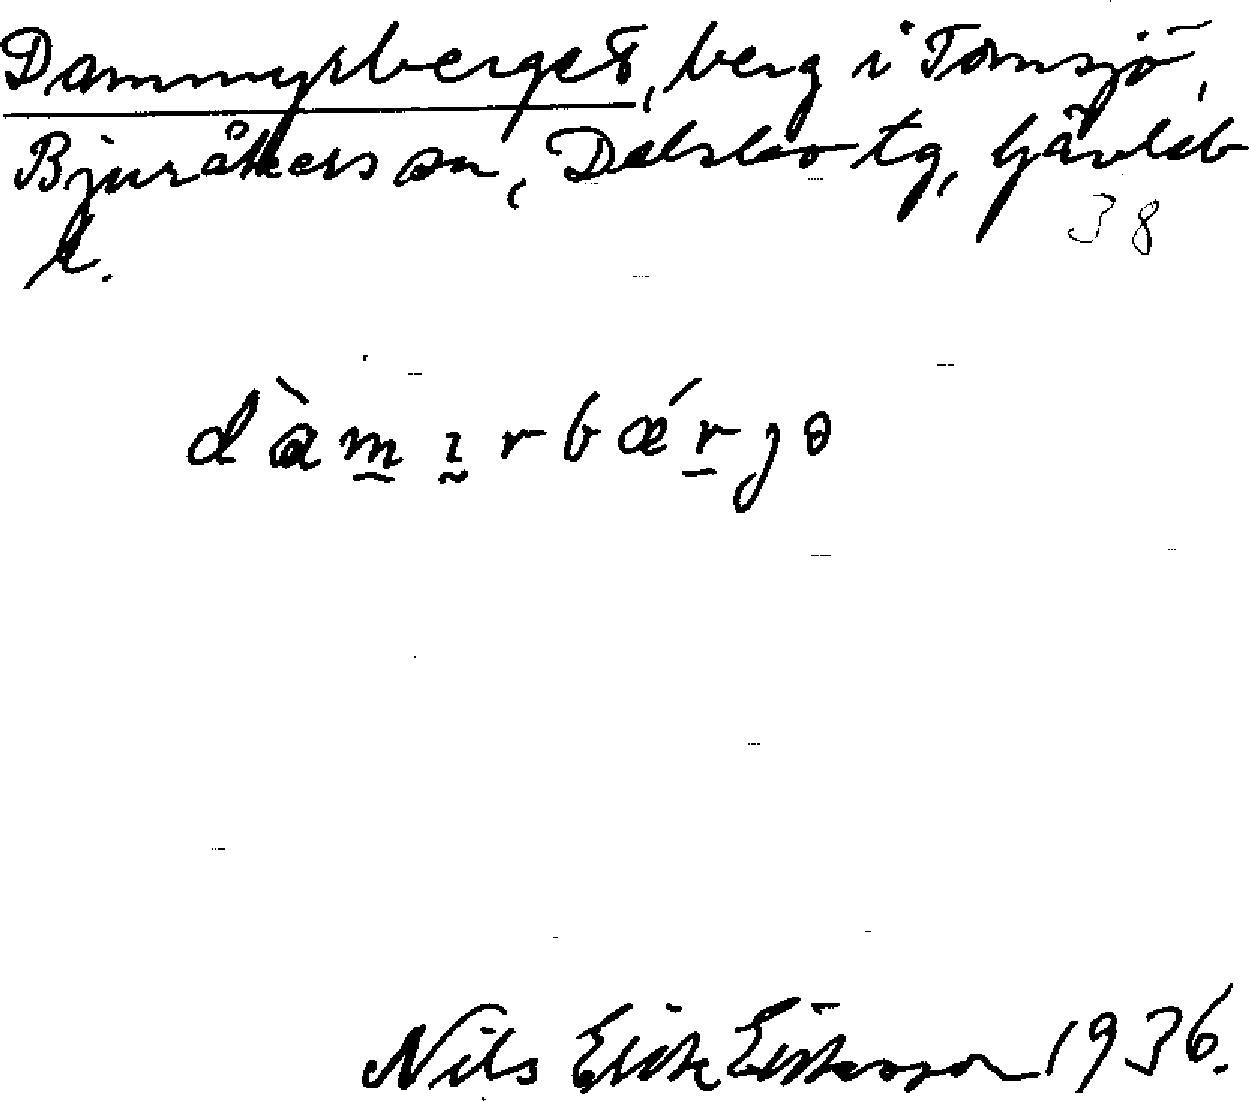 Dammyrberget, berg i Tomsjö,
Bjuråkers sn, Delsbo tg, Gävleb
l.
38
dàmırbǽrjə
Nils Erik Eriksson 1936.